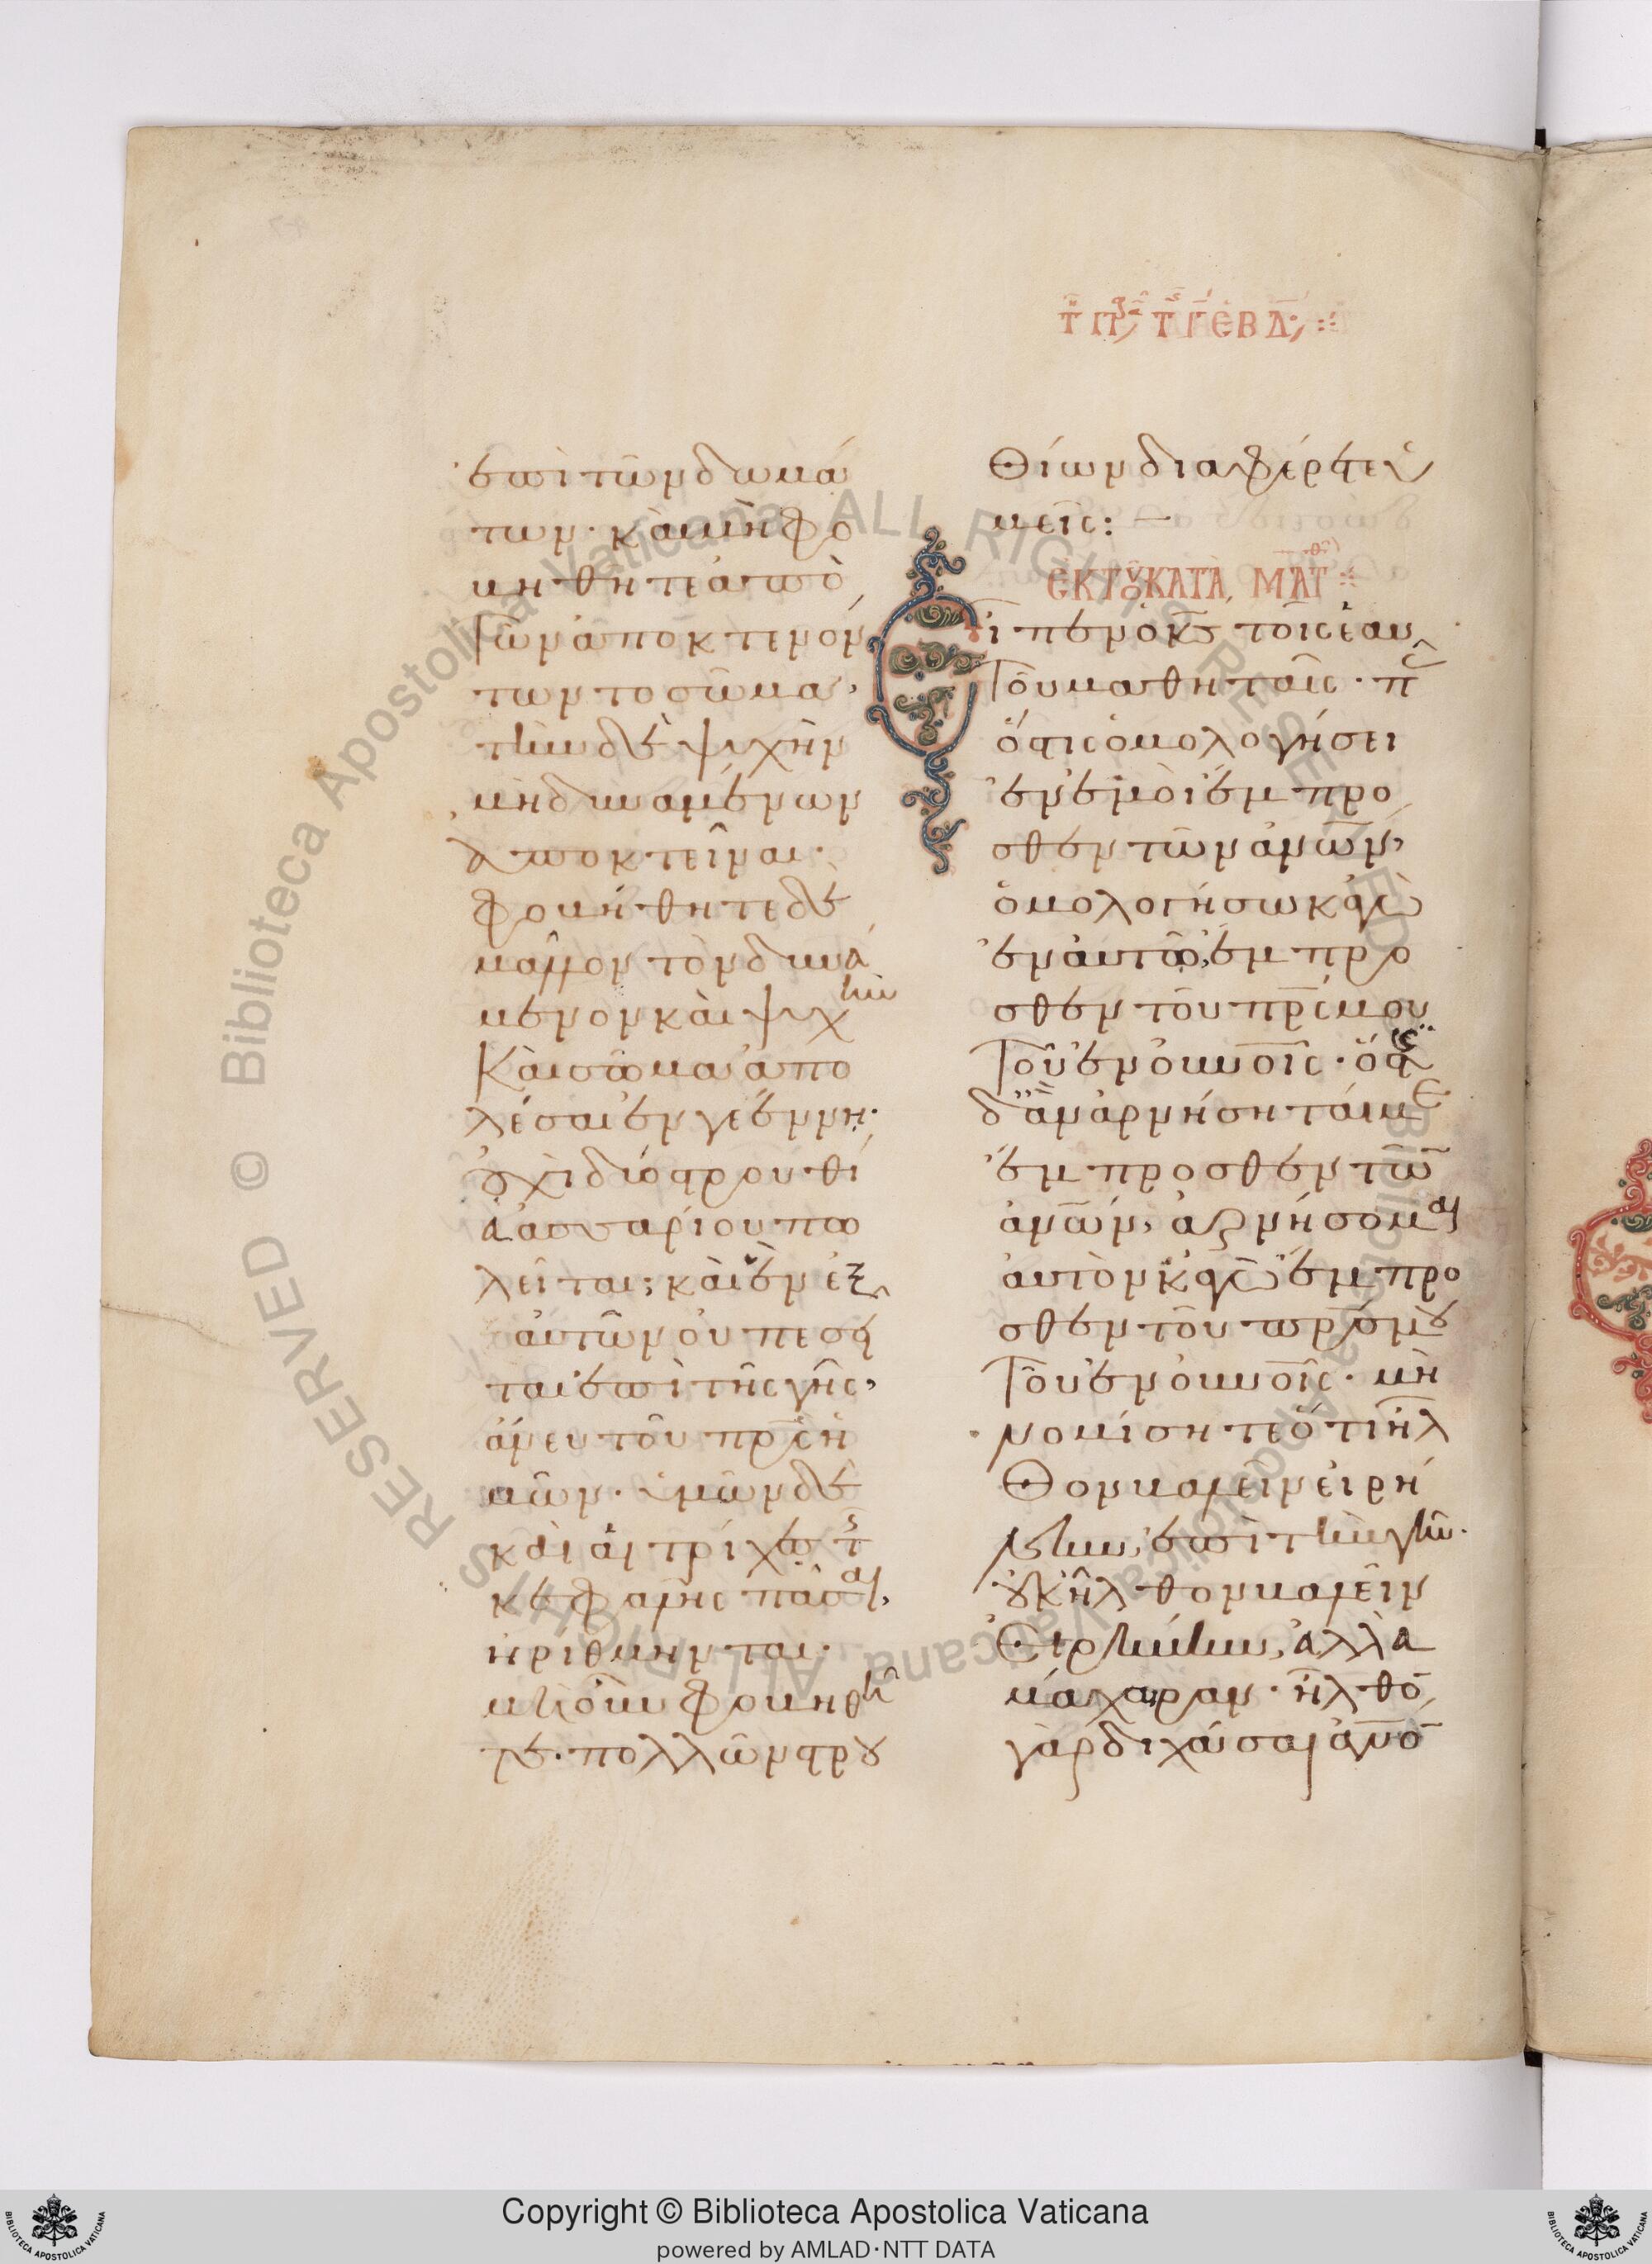 Τῇ πρ̅ς τῆς Γ ἑβδ:
ἐπὶ τῶν δωμά
των· καὶ μὴ φο
βηθῆτε ἀπὸ
τῶν ἀποκτενόν
των τὸ σῶμα,
τὴν δὲ ψυχὴν
μὴ δυναμένων
ἀποκτεῖναι·
φοβήθητε δὲ
μᾶλλον τὸν δυνά
μενον καὶ ψυχὴν
καὶ σῶμα ἀπο
λέσαι ἐν γεέννῃ·
οὐχὶ δύο στρουθί
α ἀσσαρίου πω
λεῖται; καὶ ἓν ἐξ
αὐτῶν οὐ πεσεῖ
ται ἐπὶ τῆς γῆς,
ἄνευ τοῦ πρ̅ς ὑ
μῶν· ὑμῶν δὲ
καὶ αἱ τρίχες τῆς
κεφαλῆς πᾶσαι,
ἠριθμημέναι·
μὴ οὖν φοβηθῆ
τε· πολλῶν στρου
θίων διαφέρετε ὑ
μεῖς:—
ἐκ τοῦ κατὰ Ματθ
Εἶπεν ὁ κ̅ς τοῖς ἑαυ
τοῦ μαθηταῖς· πᾶς
ὅστις ὁμολογήσει
ἐν ἐμοὶ ἔμπρο
σθεν τῶν ἀν̅ων,
ὁμολογήσω κἀγὼ
ἐν αὐτῷ, ἔμπρο
σθεν τοῦ πρ̅ς μου
τοῦ ἐν οὐν̅οις· ὅστις
δ' ἂν ἀρνήσηταί με
ἔμπροσθεν τῶν
ἀν̅ων, ἀρνήσομαι
αὐτὸν κἀγὼ ἔμπρο
σθεν τοῦ πρ̅ς μου
τοῦ ἐν οὐν̅οις· μὴ
νομίσητε ὅτι ἦλ
θον βαλεῖν εἰρή
νην, ἐπὶ τὴν γῆν·
οὐκ ἦλθον βαλεῖν
εἰρήνην, ἀλλὰ
μάχαιραν· ἦλθον
γὰρ διχάσαι ἀν̅ον